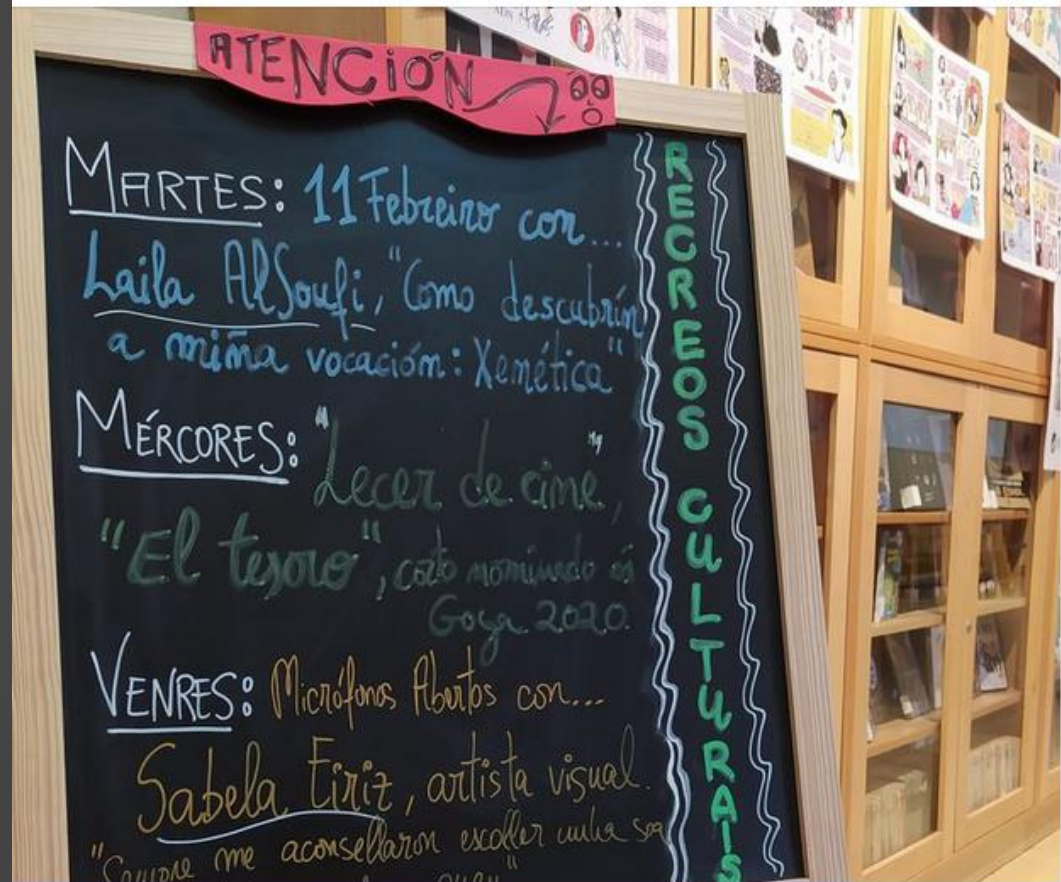 ATENCIÓN
MARTES: 11 Febreiro con...
Laila AlSoufi, "Como descubrín
a miña vocación: Xenética"
MÉRCORES: "Lecer de cine",
"El tesoro", corto nominado ós
Goya 2020.
VENRES: Micrófonos Abertos con...
Sabela Eiriz, artista visual.
"Sempre me aconsellaron escoller unha soa
RECREOS CULTURAIS